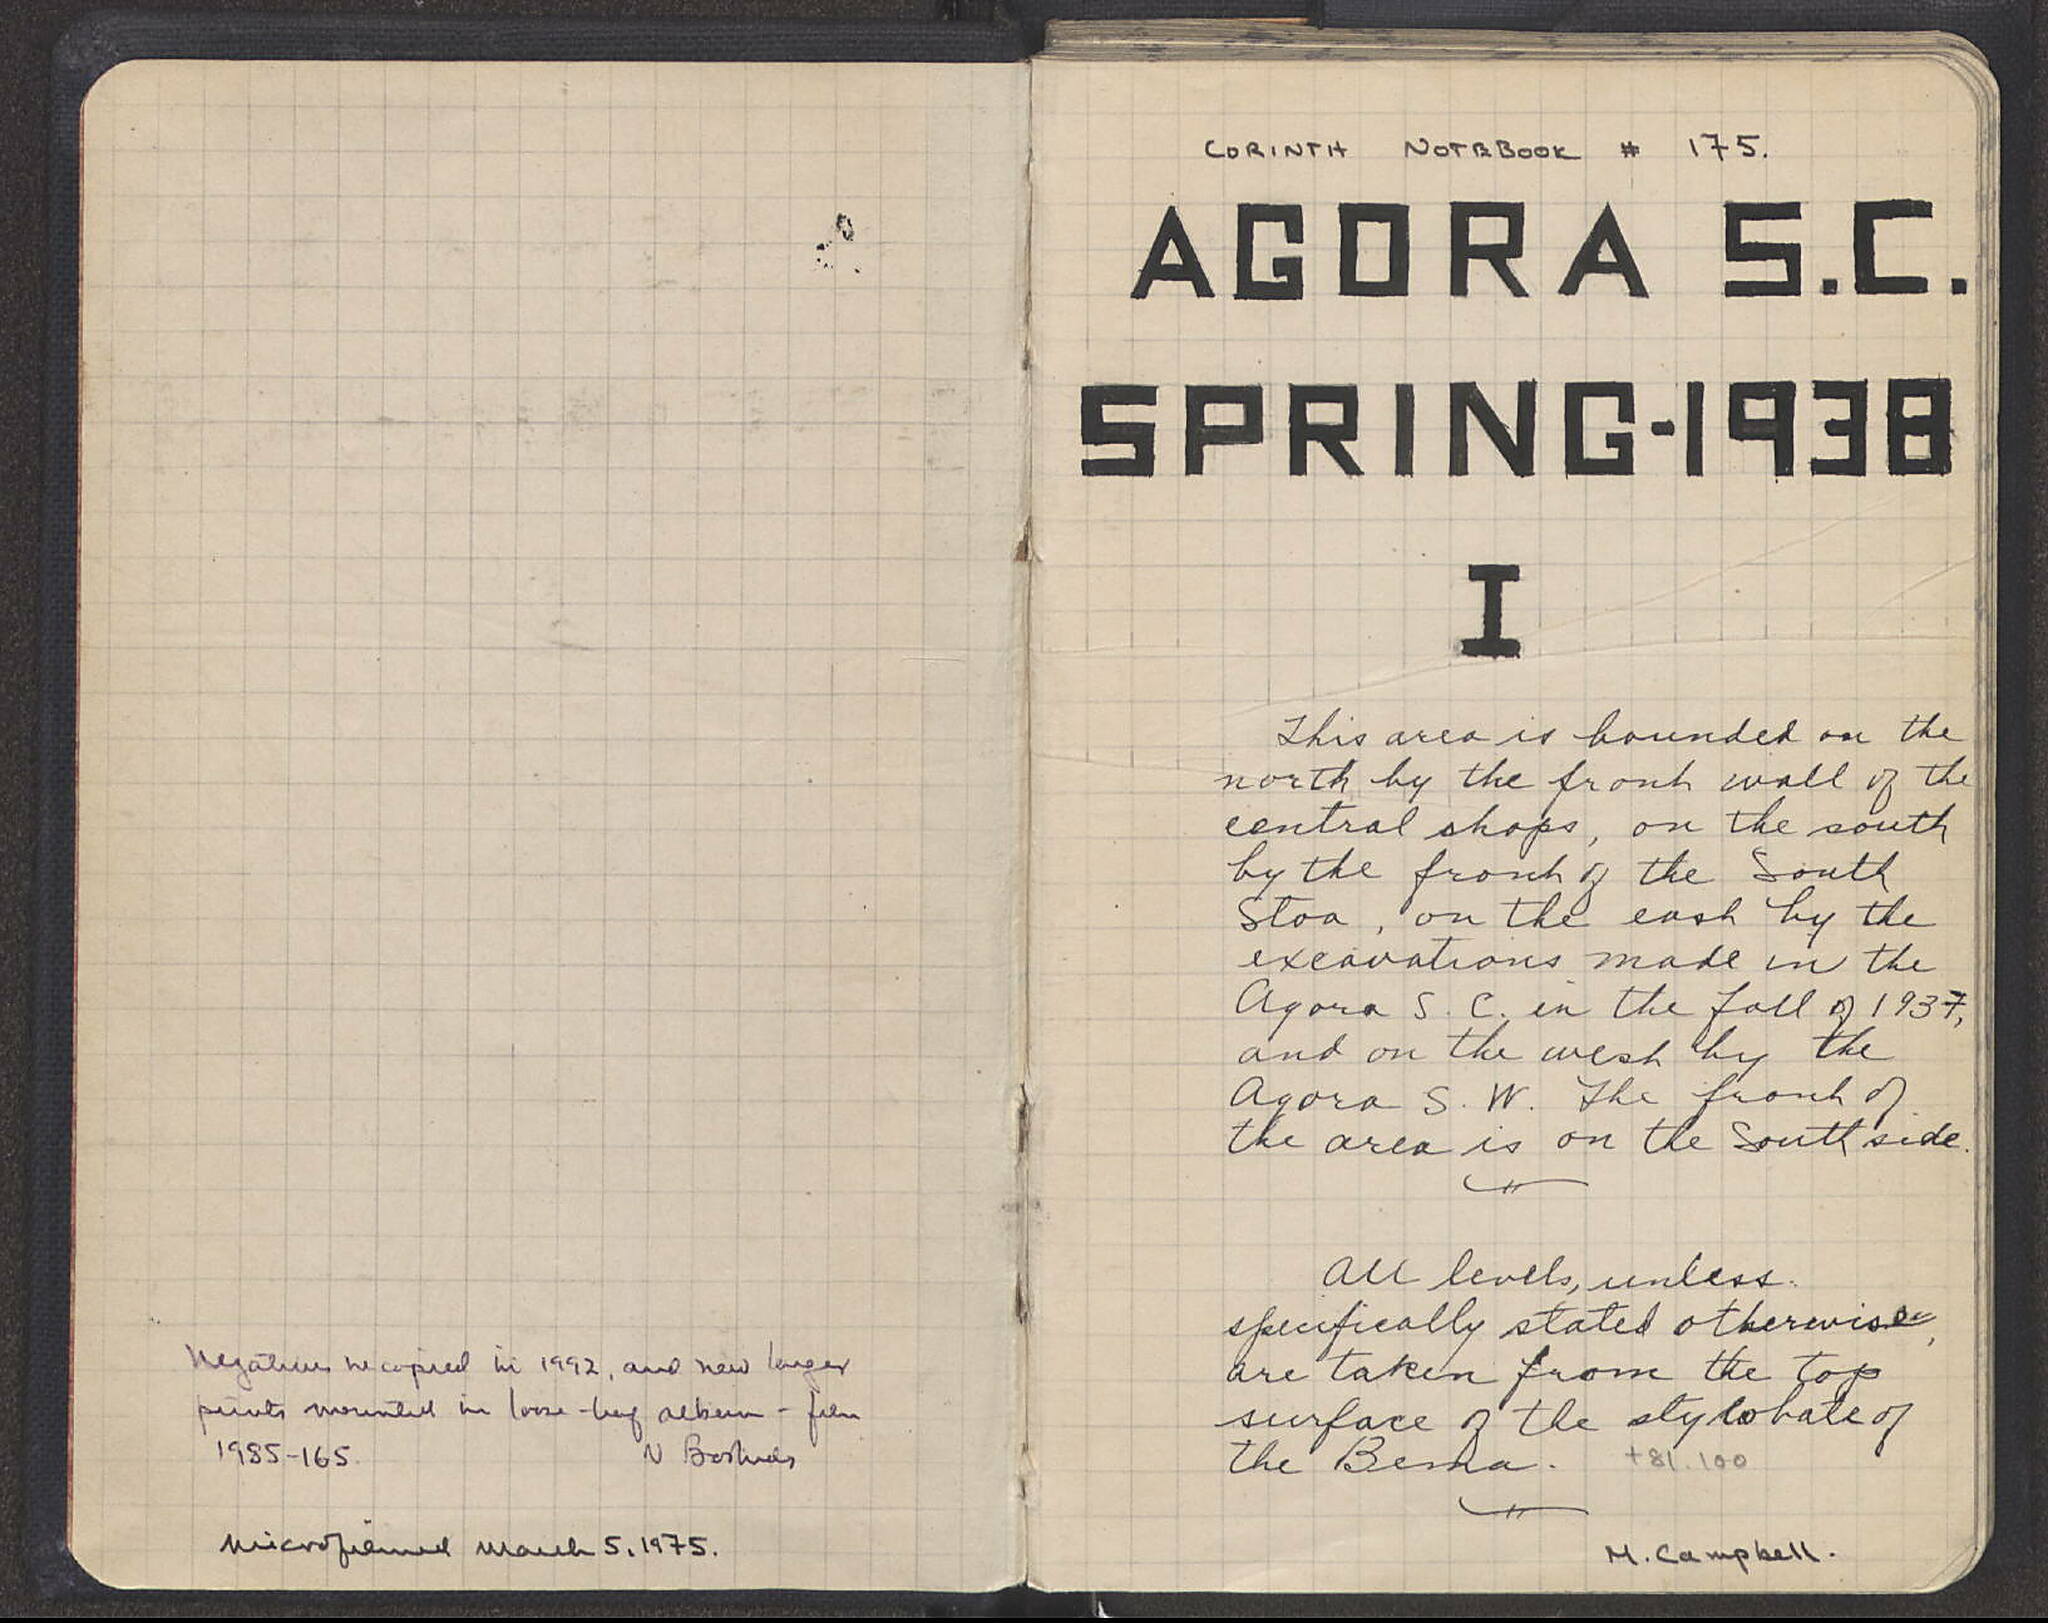 Negatives recopied in 1992, and new larger
prints mounted in loose-leaf album - film
1985-165.
N Bookidis
Microfilmed March 5, 1975.
CORINTH NOTEBOOK # 175.
AGORA S.C.
SPRING-1938
I
This area is bounded on the
north by the front wall of the
central shops, on the south
by the front of the South
Stoa, on the east by the
excavations made in the
Agora S. C. in the fall of 1937,
and on the west by the
Agora S. W. The front of
the area is on the South side.
All levels, unless
specifically stated otherwise,
are taken from the top
surface of the stylobate of
the Bema. +81.100
M. Campbell.